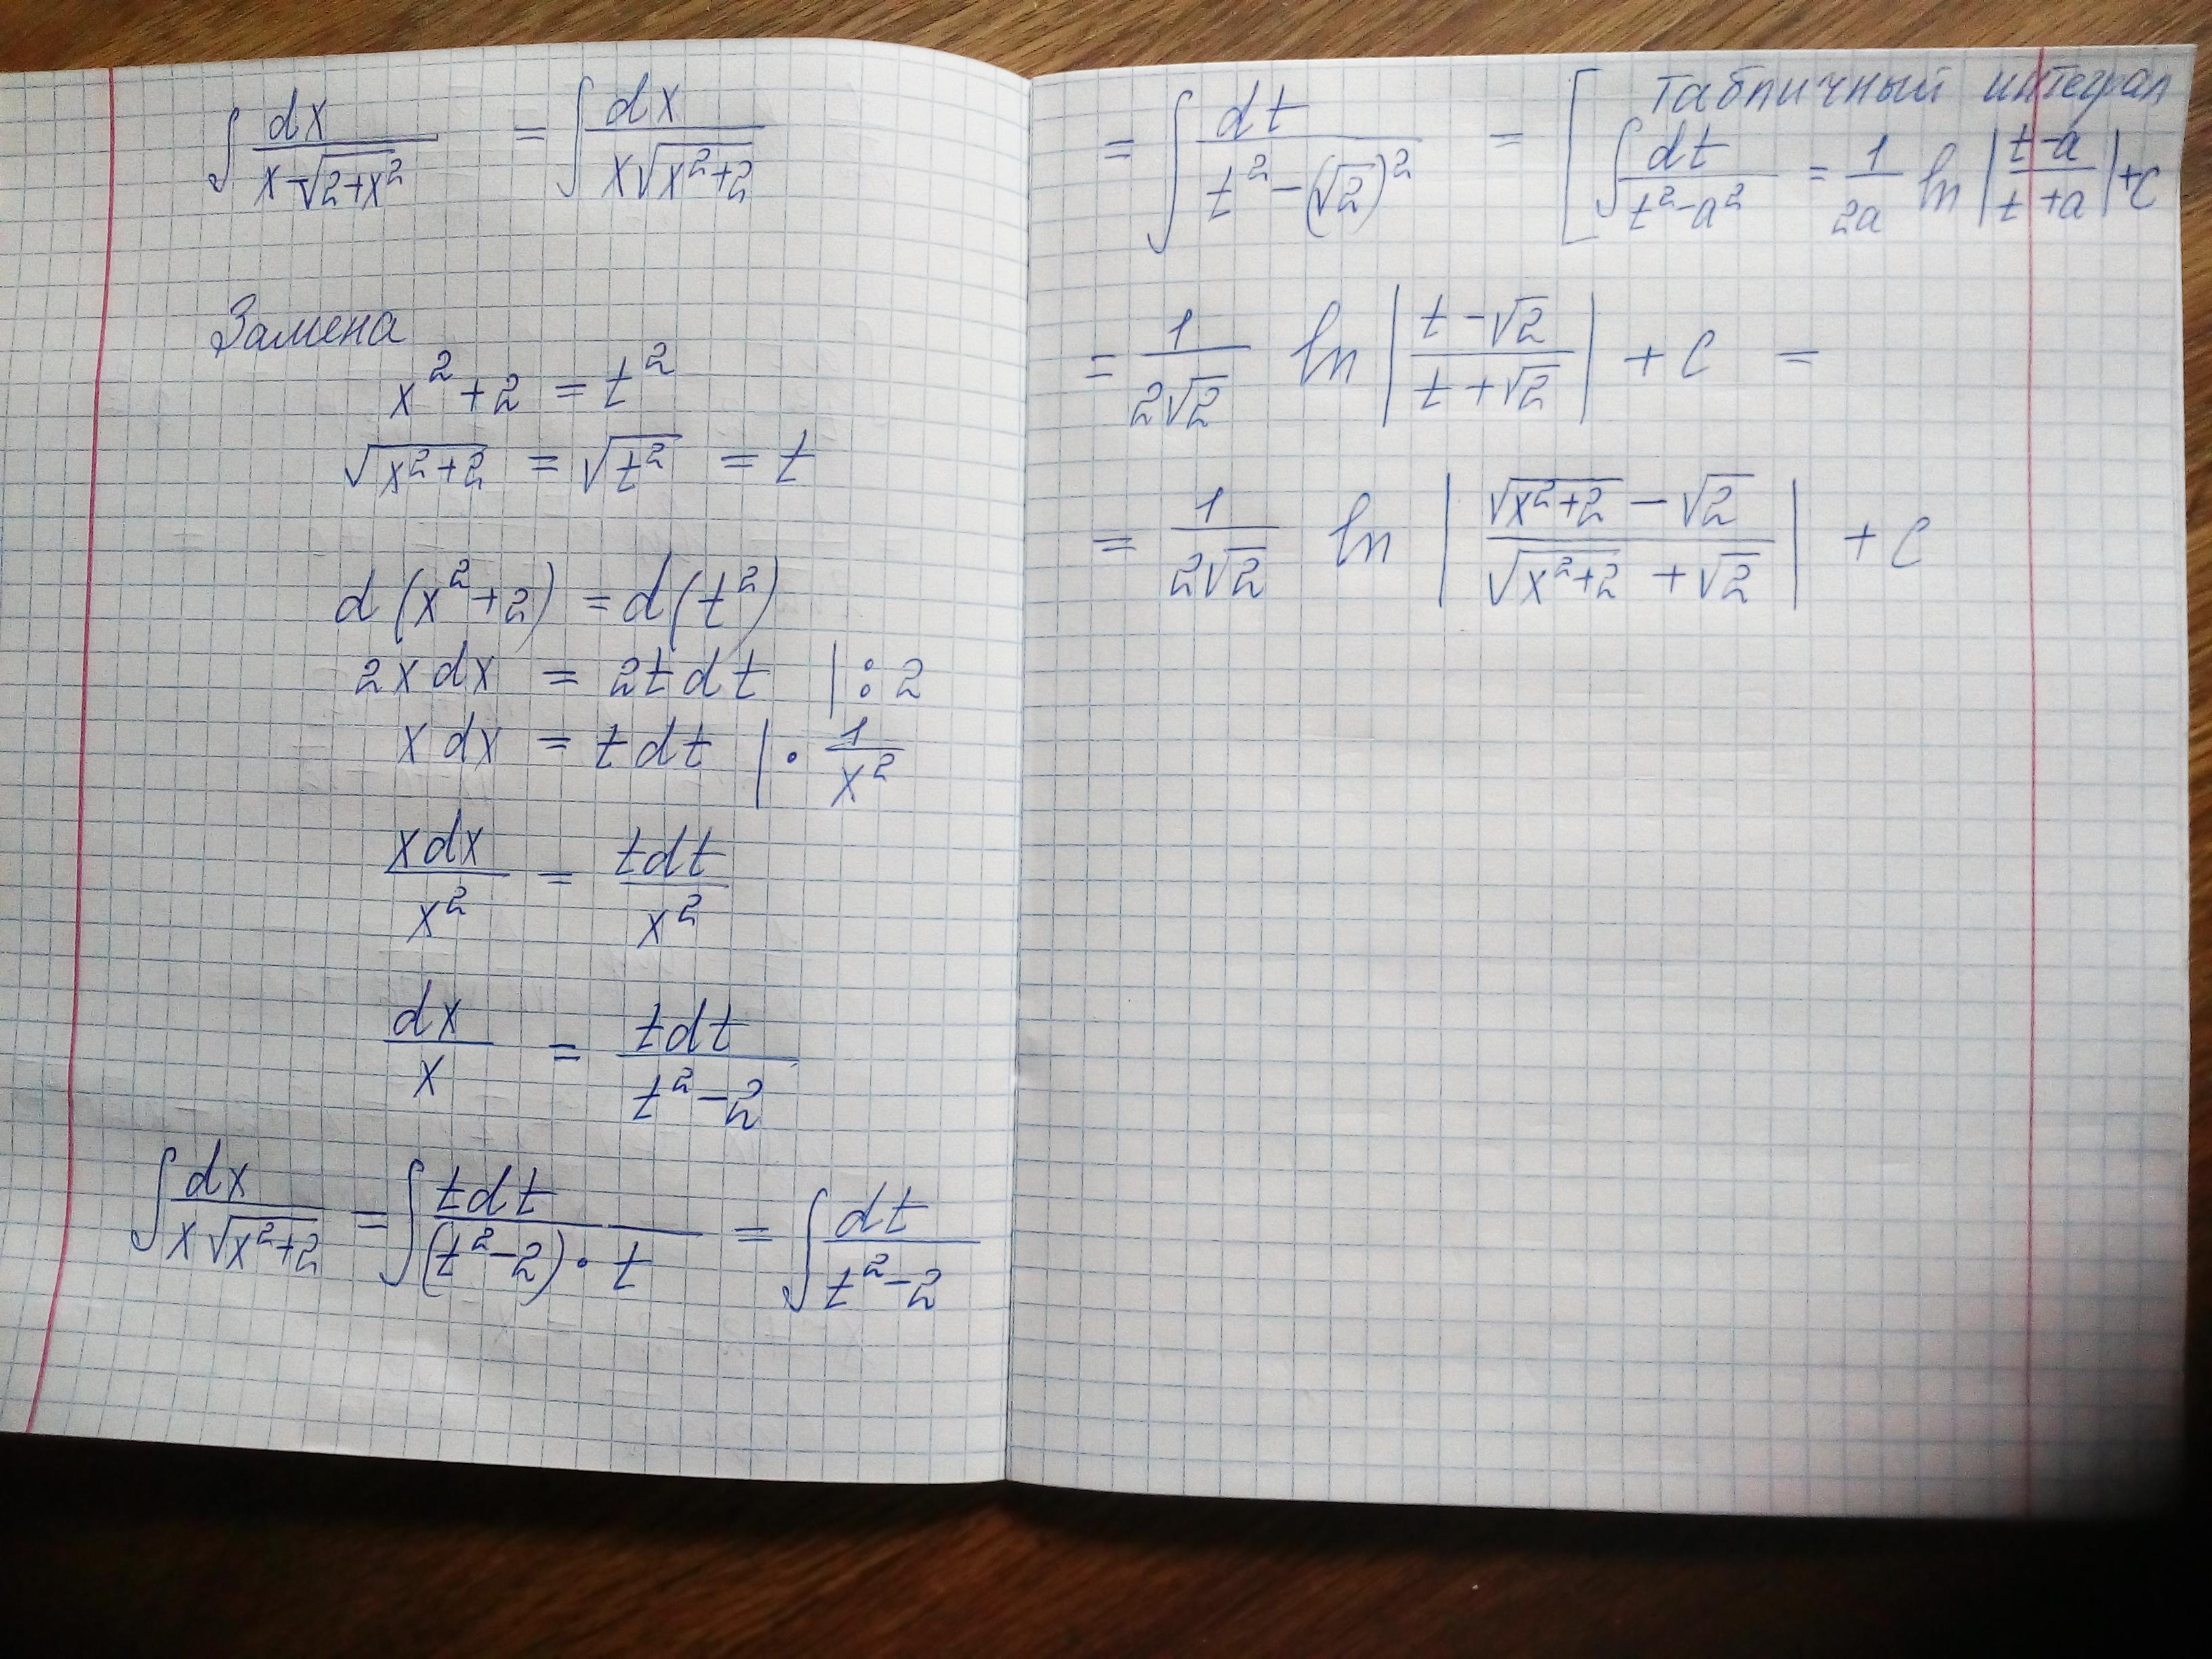 ∫ dx / (x √(2+x²)) = ∫ dx / (x √(x²+2))
Замена
x² + 2 = t²
√(x²+2) = √(t²) = t
d(x²+2) = d(t²)
2x dx = 2t dt | : 2
x dx = t dt | · 1/x²
xdx / x² = tdt / x²
dx / x = tdt / (t² − 2)
∫ dx / (x √(x²+2)) = ∫ tdt / ((t²−2) · t) = ∫ dt / (t² − 2)
= ∫ dt / (t² − (√2)²) = [ табличный интеграл
∫ dt / (t² − a²) = 1/(2a) ln |(t − a)/(t + a)| + C
= 1/(2√2) ln |(t − √2)/(t + √2)| + C =
= 1/(2√2) ln |(√(x²+2) − √2)/(√(x²+2) + √2)| + C